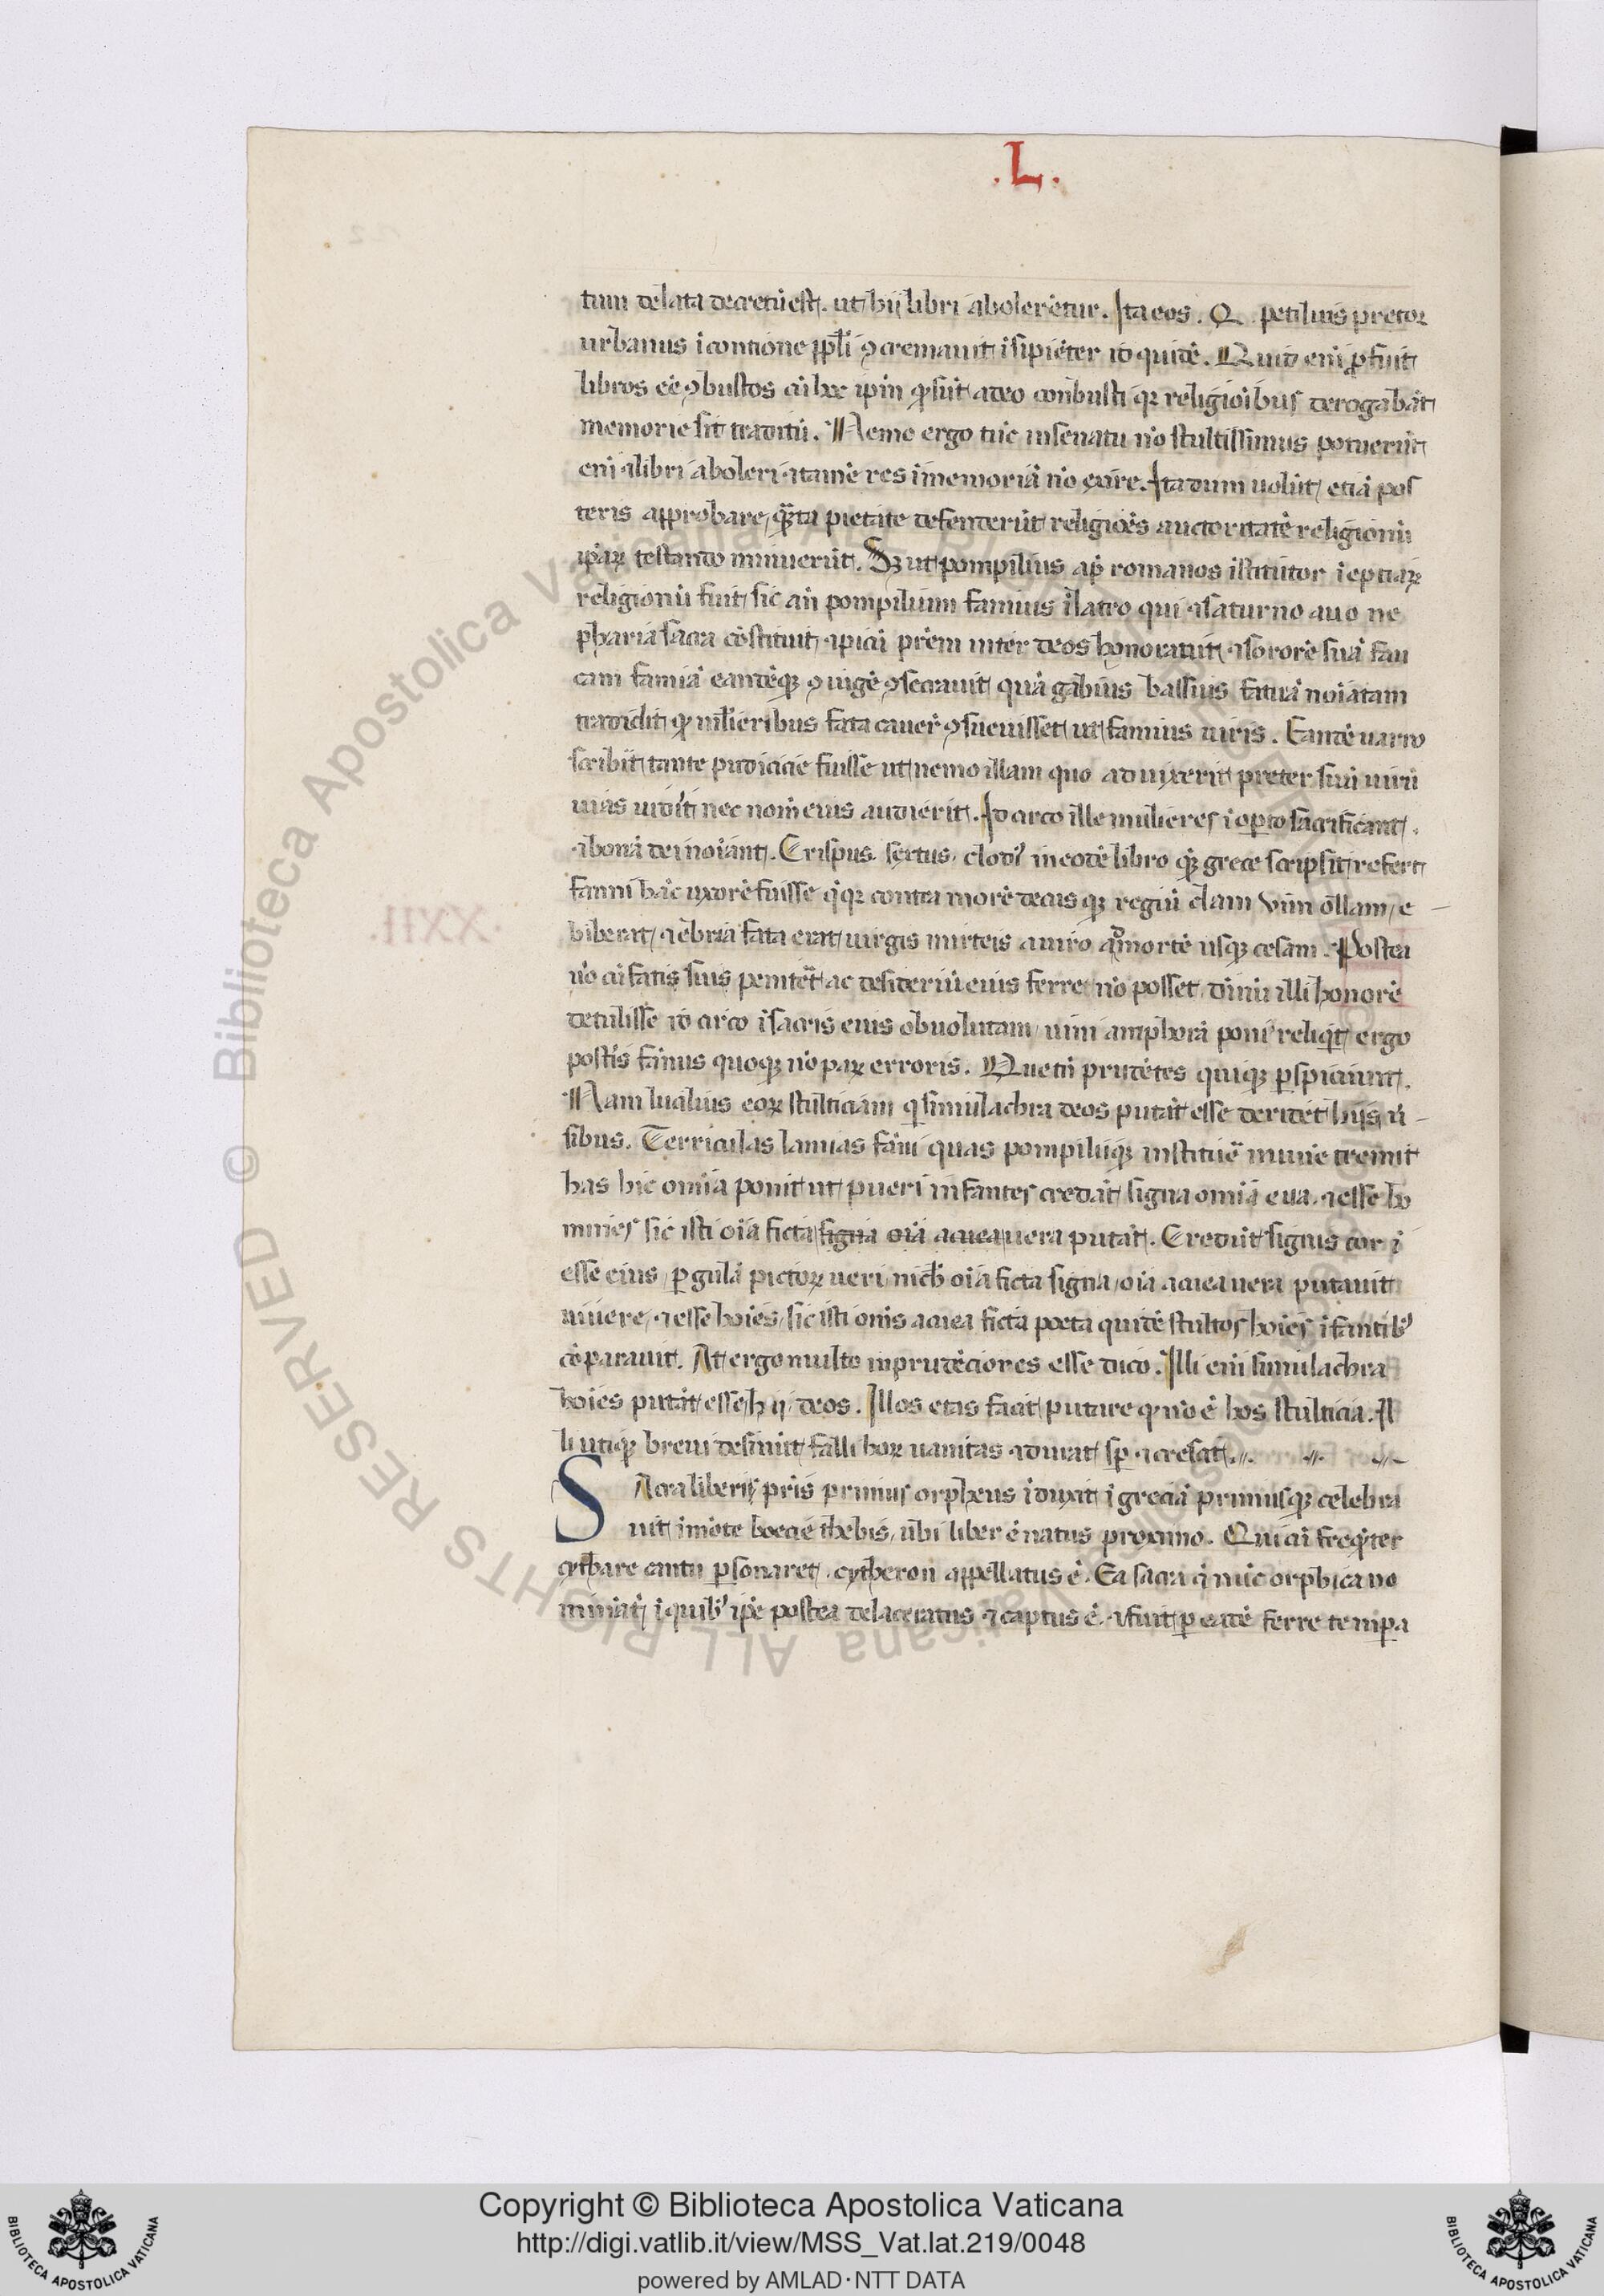 .L.
tum delata decretū est. ut hij libri abolerētur. Ita eos. Q. petilius pretor
urbanus i contione ppl̄i ꝯcremauit isipiēter id quidē. Quid eni ꝓfuit
libros eē ꝯbustos cū hec ipm̄ ꝙ sūt adeo conbusti qꝛ religioībus derogabāt
memorie sit traditū. Nemo ergo tūc in senatu nō stultissimus potuerūt
eni ⁊ libri aboleri ⁊ tamē res i memoriā nō exire. Ita dum uolūt etiā pos
teris approbare, quāta pietate defenderūt religiōēs auctoritatē religionū
ip̄aꝝ testando minuerūt. Sꝫ ut pompilius ap̄ romanos istitutor ieptiaꝝ
religionū fuit sic an̄ pompilium faunus i latio qui ⁊ saturno auo ne
phariā sacra cōstituit ⁊ picū prēm inter deos honorauit ⁊ sororē suā fau
cam fauniā eandēqꝫ ꝯiugē ꝯsecrauit quā gabius bassus fatuā noiātam
tradidit ꝙ mulieribus fata canerē ꝯsueuisset ut faunus uiris. Eandē uarro
scribit tante pudicicie fuisse ut nemo illam quo ad uixerit preter suū uirū
mas uiderit nec nomē eius audierit. Id circo ille mulieres i operto sacrificant.
⁊ bonā deā noiāt. Crispus sextus clodꝰ in eodē libro quē grece scripsit refert
fauni hāc uxorē fuisse q̄ qꝛ contra morē decusqꝫ regiū clam uini ollam e
biberat ⁊ ebria fata erat uirgis mirteis a uiro ad mortē usqꝫ cesam. Postea
uō cū fatis suis penitēt ac desideriū eius ferre nō posset diuinū illi honorē
detulisse id circo i sacris eius obuolutam uini amphorā poni reliqit ergo
posteris faunus quoqꝫ nō paꝝ erroris. Que tn̄ prudētes quiqꝫ ꝑspiciunt.
Nam lucilius eoꝝ stulticiam q̄ simulachra deos putāt esse deridet hijs ū
sibus. Terriculas lamias fauni quas pompiliiqꝫ instituere nume tremit
has hic omīa ponit ut pueri infantes credāt signa omīa eua ⁊ esse ho
mines sic isti oīa ficta signa oīa acuea uera putāt. Credūt signis cor ī
esse eius ꝑgula pictoꝝ ueri nichil oīa ficta signa oīa acuea uera putauit
uiuere ⁊ esse hoīes sic isti omīs acuea ficta poeta quidē stultos hoīes ifantibꝰ
cōparauit. At ergo multo inprudēciores esse dico. Illi eni simulachra
hoīes putāt esse hij deos. Illos etas facit putare ꝙ nō ē hos stulticia. Il
li utiqꝫ breui desinūt falli hoꝝ uanitas ⁊ durat sp̄ ⁊ crescit.
SAcra liberis pr̄is primus orpheus iduxit i grecia primusqꝫ celebra
uit i mōte boecie thebis, ubi liber ē natus proximo. Qui cū freqn̄ter
cythare cantu ꝑsonaret cytheron appellatus ē. Ea sacra ē nūc orphica no
minātur i quibꝰ ip̄e postea delaceratus ⁊ captus ē ⁊ fuit ꝑ eadē ferre tempa
Copyright © Biblioteca Apostolica Vaticana
http://digi.vatlib.it/view/MSS_Vat.lat.219/0048
powered by AMLAD·NTT DATA